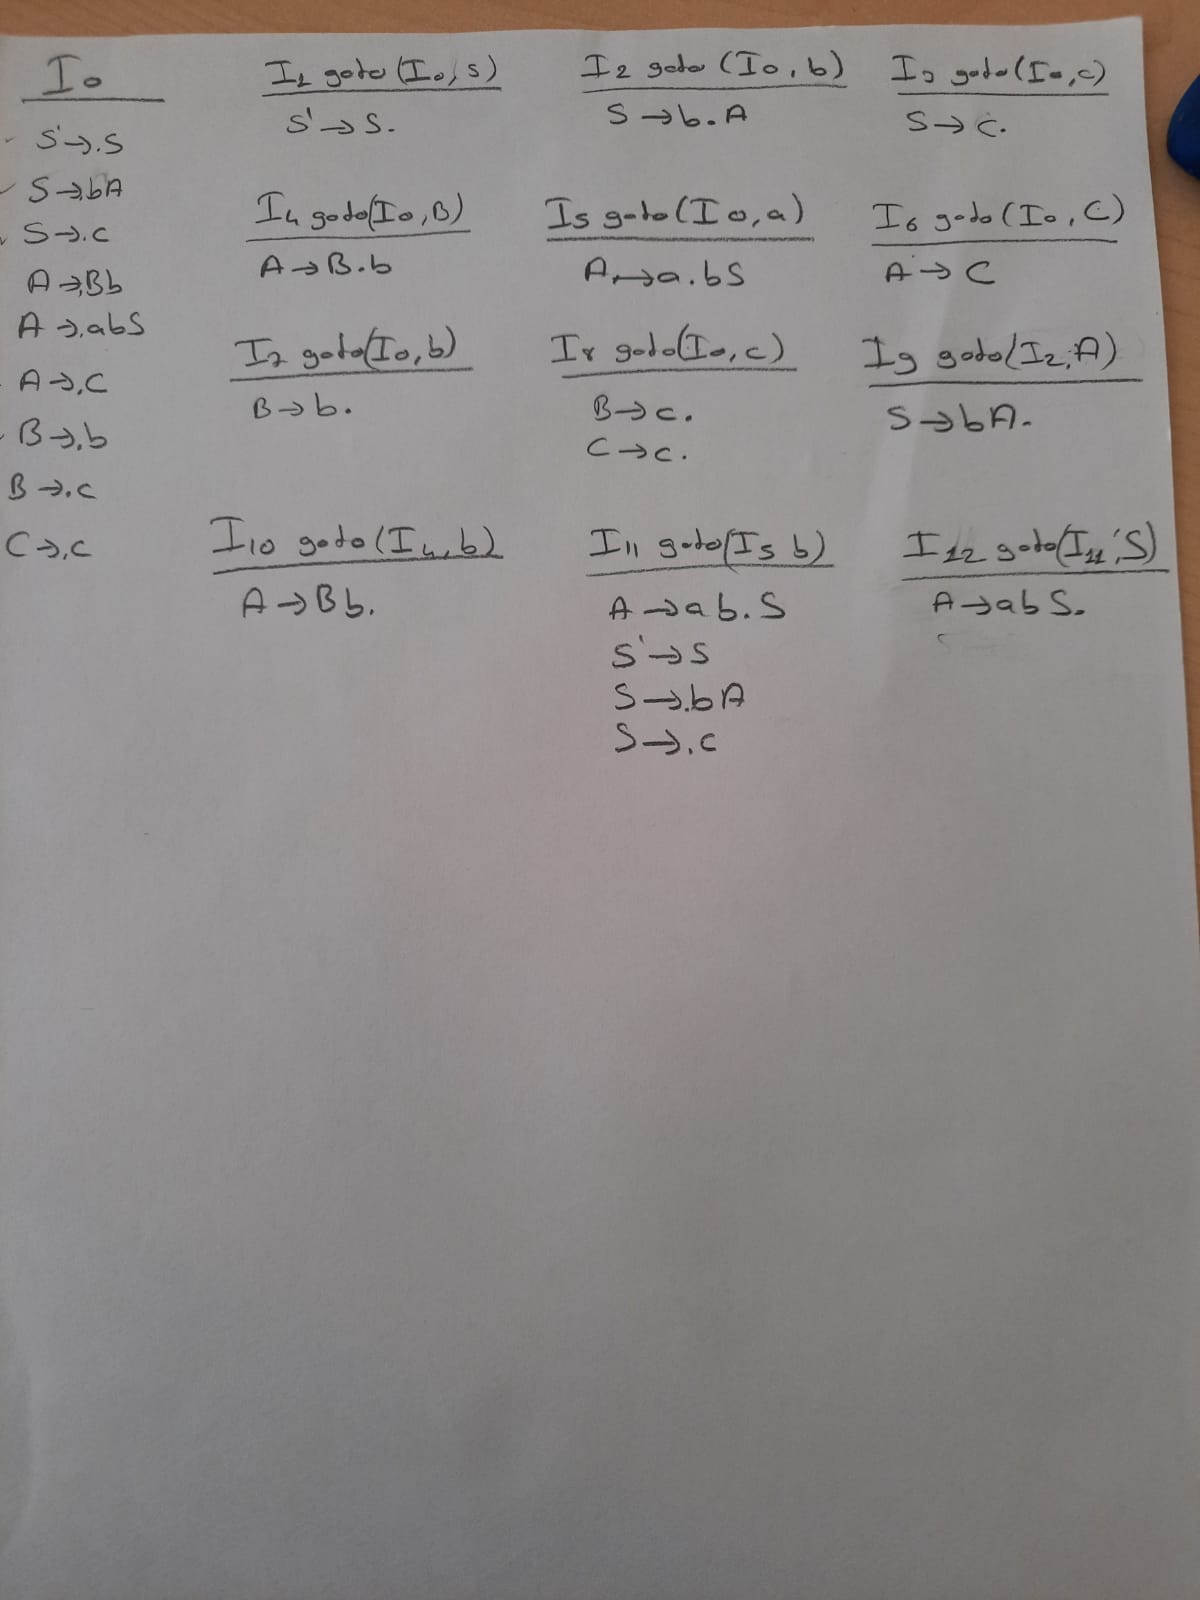 I0
S'→.S
S→.bA
S→.c
A→.Bb
A→.abS
A→.C
B→.b
B→.c
C→.c
I1 goto (I0,S)
S'→S.
I2 goto (I0,b)
S→b.A
I3 goto(I0,c)
S→c.
I4 goto(I0,B)
A→B.b
I5 goto(I0,a)
A→a.bS
I6 goto(I0,C)
A→C
I7 goto(I0,b)
B→b.
I8 goto(I0,c)
B→c.
C→c.
I9 goto(I2,A)
S→bA.
I10 goto(I4,b)
A→Bb.
I11 goto(I5 b)
A→ab.S
S'→S
S→.bA
S→.c
I12 goto(I11,S)
A→abS.